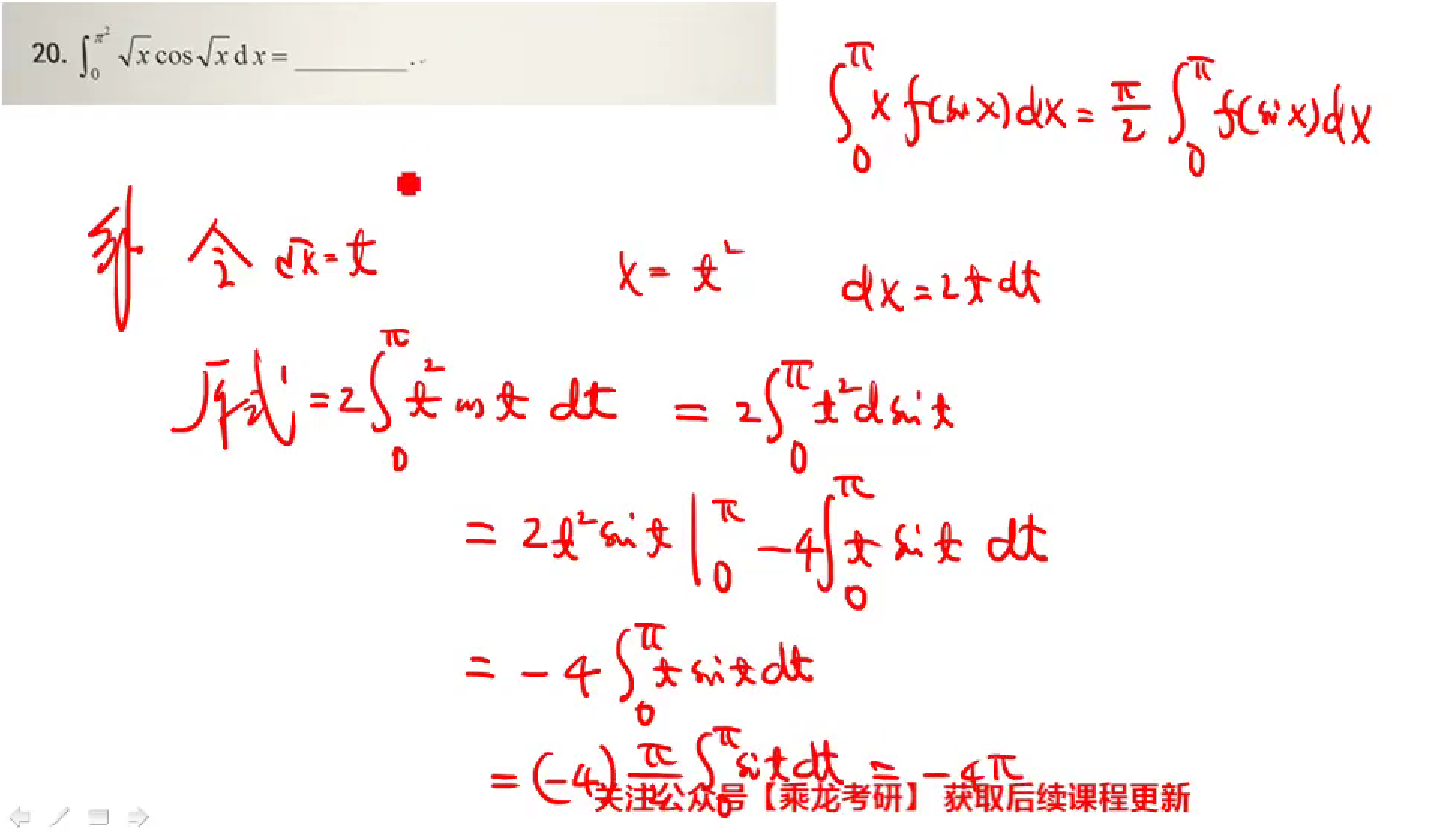 20. ∫₀^{π²} √x cos √x dx = ________.
∫₀^π x f(sin x)dx = π/2 ∫₀^π f(sin x)dx
解 令 √x = t  x = t²  dx = 2t dt
原式 = 2∫₀^π t² cos t dt = 2∫₀^π t² d sin t
= 2t² sin t |₀^π − 4∫₀^π t sin t dt
= −4 ∫₀^π t sin t dt
= (−4) π/2 ∫₀^π sin t dt = −4π
关注公众号【乘龙考研】 获取后续课程更新